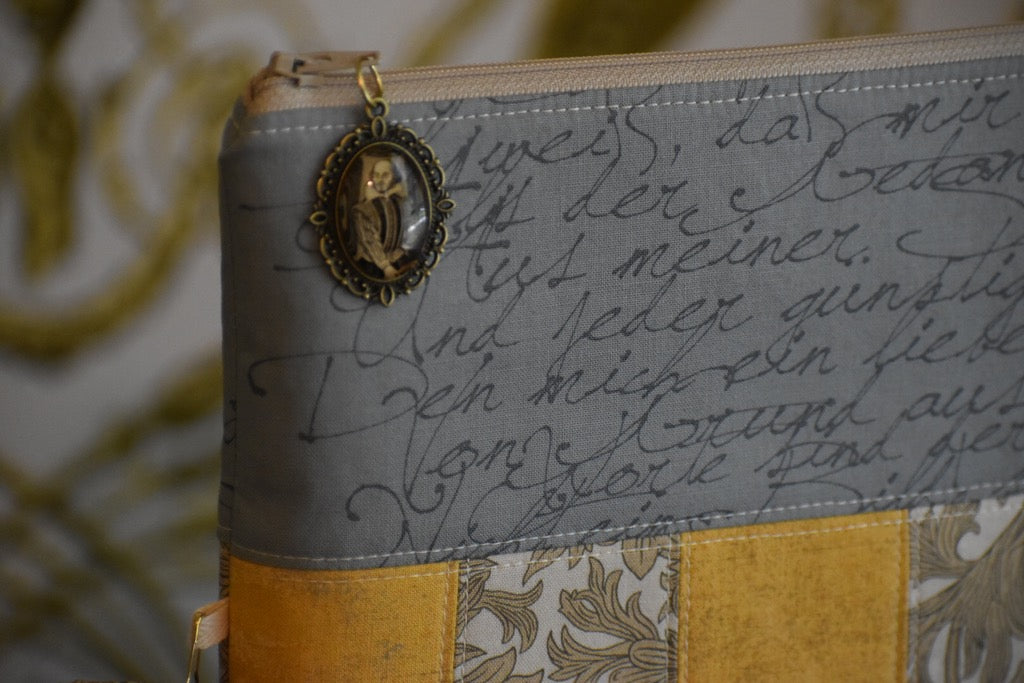 weiß, daß mir
der Gedan
Aus meiner
Und jeder gunstig
Den mich ein liebe
Von Grund aus
Worte sind der